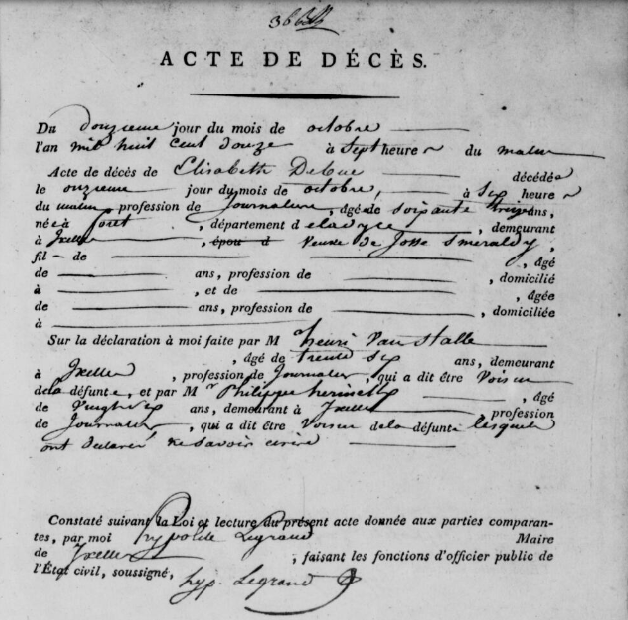 366
ACTE DE DÉCÈS.
Du Douzieme jour du mois de octobre
l'an mil huit cent douze à sept heure du matin
Acte de décès de Elisabeth Debue décédée
le onzieme jour du mois de octobre, à six heure
du matin profession de Journaliere, âgé de soixante treize ans,
née à foret, département de la dyle, demeurant
à Ixelles, épou d veuve de Josse Smeraldy,
fil de , âgé
de ans, profession de , domicilié
à , et de , âgée
de ans, profession de , domiciliée
à
Sur la déclaration à moi faite par M henri Van Stalle
, âgé de trente six ans, demeurant
à Ixelles, profession de Journalier, qui a dit être Voisin
de la défunte, et par Mr Philippe herinckx, âgé
de Vingt six ans, demeurant à Ixelles profession
de Journalier, qui a dit être Voisin de la défunte lesquels
ont déclaré, ne savoir ecrire
Constaté suivant la Loi et lecture du présent acte donnée aux parties comparan-
tes, par moi hypolite Legrand Maire
de Ixelles, faisant les fonctions d'officier public de
l'État civil, soussigné, hyp. Legrand